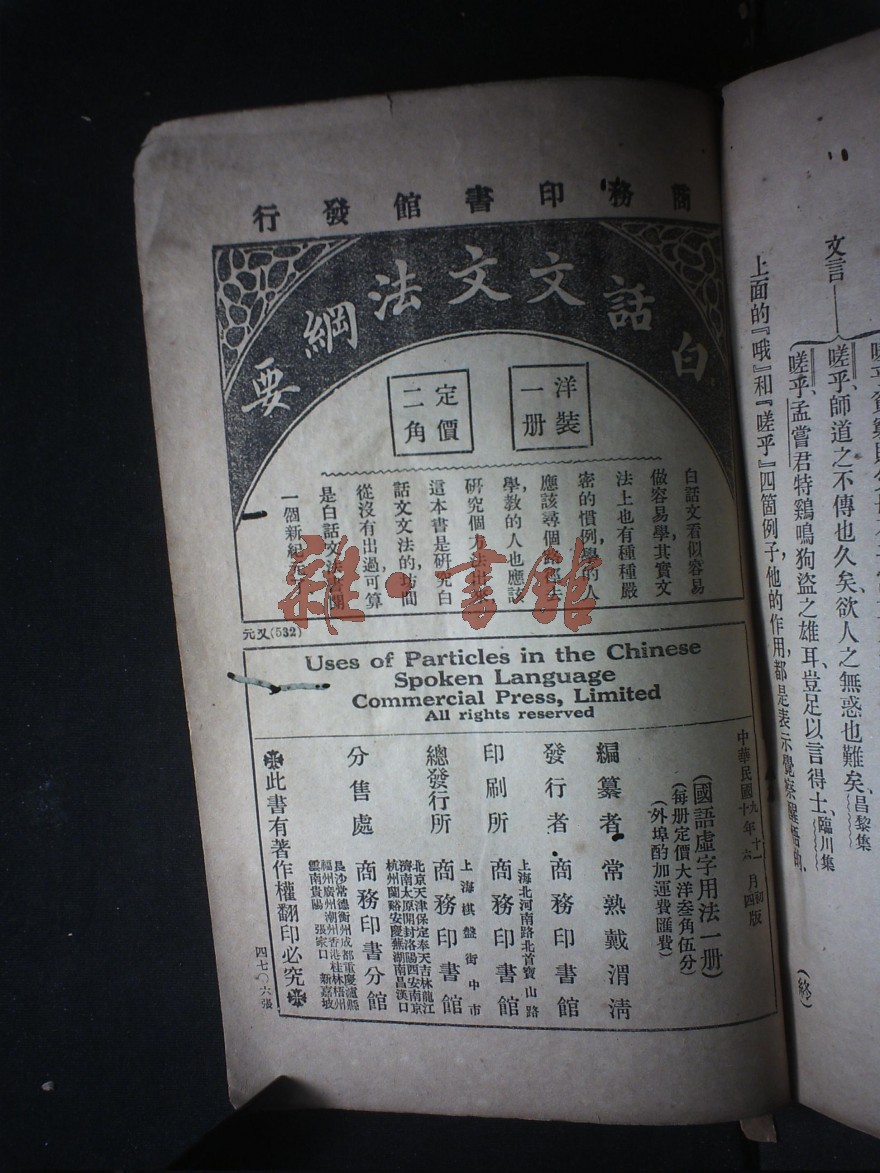 商務印書館發行
白話文文法綱要
洋裝一册
定價二角
白話文看似容易
做容易學,其實文
法上也有種種嚴
密的慣例,學的人
應該尋個路徑去
學,教的人也應該
研究個方法出來
這本書是研究白
話文文法的,坊間
從沒有出過,可算
是白話文法書
一個新紀元
元又(532)
雜·書館
Uses of Particles in the Chinese
Spoken Language
Commercial Press, Limited
All rights reserved
中華民國九年十一月初版
十年六月四版
(國語虛字用法一册)
(每册定價大洋叁角伍分)
(外埠酌加運費匯費)
編纂者 常熟戴渭清
發行者 商務印書館
上海北河南路北首寶山路
印刷所 商務印書館
上海棋盤街中市
總發行所 商務印書館
北京天津保定奉天吉林龍江
濟南太原開封洛陽西安南京
杭州蘭谿安慶蕪湖南昌漢口
分售處 商務印書分館
長沙常德衡州成都重慶瀘縣
福州廣州潮州香港桂林梧州
雲南貴陽 張家口 新嘉坡
此書有著作權翻印必究
四七〇六張
文言
嗟乎、師道之不傳也久矣、欲人之無惑也難矣、昌黎集
嗟乎、孟嘗君特鷄鳴狗盜之雄耳、豈足以言得士、臨川集
上面的『哦』和『嗟乎』四箇例子,他的作用,都是表示覺察醒悟的、
(終)